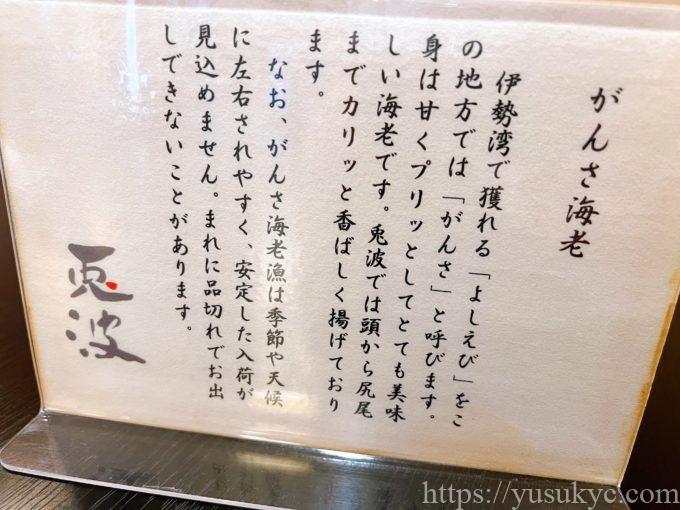 がんさ海老
伊勢湾で獲れる「よしえび」をこ
の地方では「がんさ」と呼びます。
身は甘くプリッとしてとても美味
しい海老です。兎波では頭から尻尾
までカリッと香ばしく揚げており
ます。
なお、がんさ海老漁は季節や天候
に左右されやすく、安定した入荷が
見込めません。まれに品切れでお出
しできないことがあります。
兎波
https://yusukyc.com